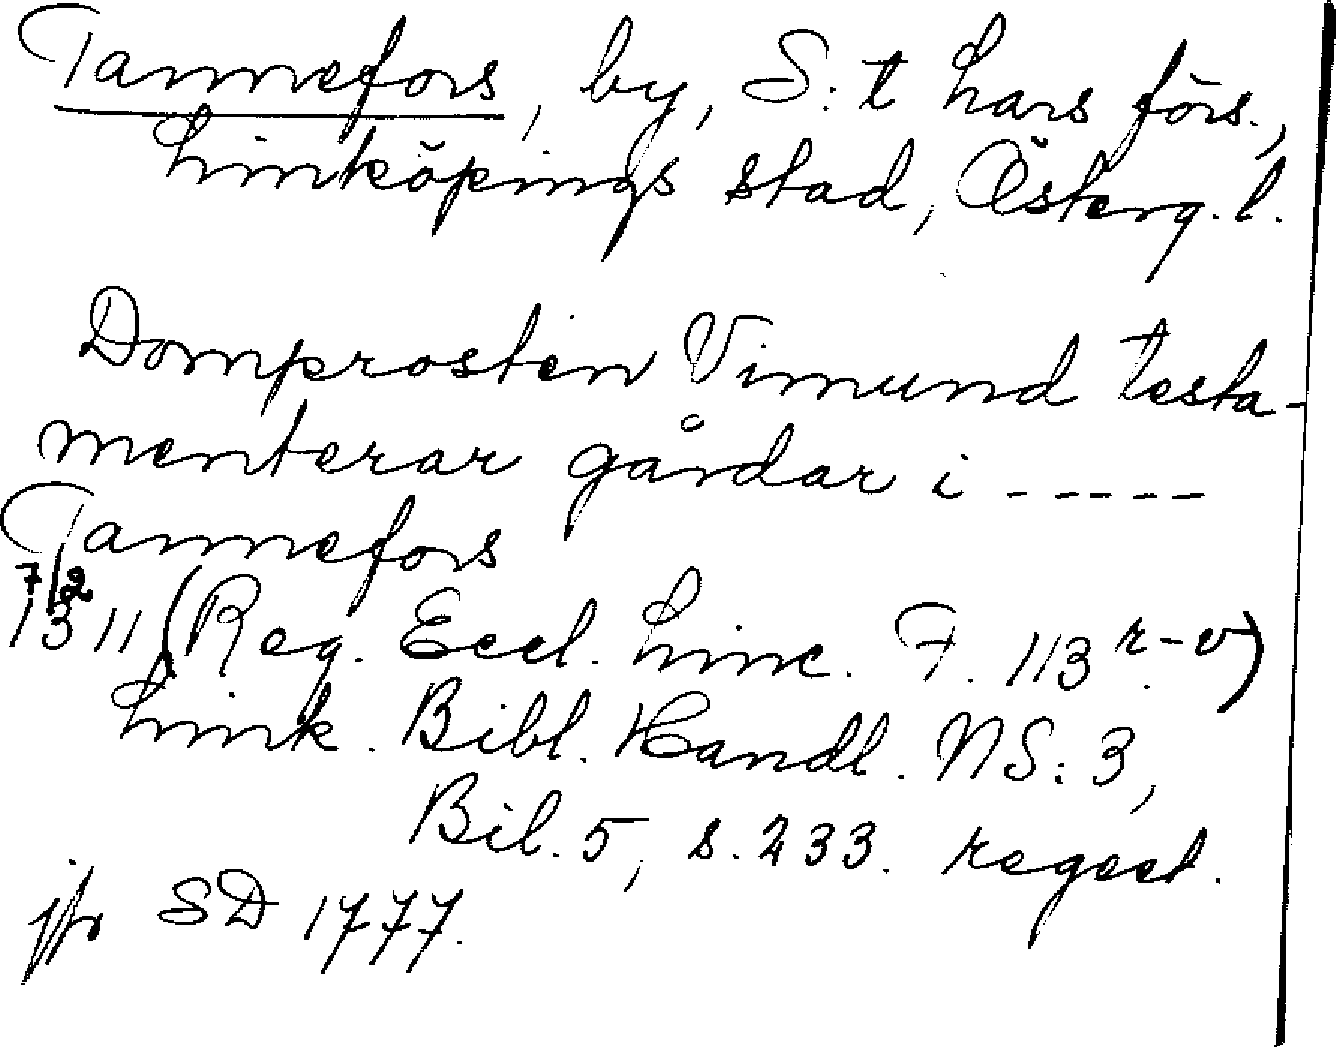 Tannefors, by, S:t Lars förs.,
Linköpings stad, Österg. l.
Domprosten Vimund testa-
menterar gårdar i -----
Tannefors
7/2
1311 (Reg. Eccl. Linc. F. 113 r-v)
Link. Bibl. Handl. NS: 3,
Bil. 5, s. 233. regest.
jfr SD 1777.